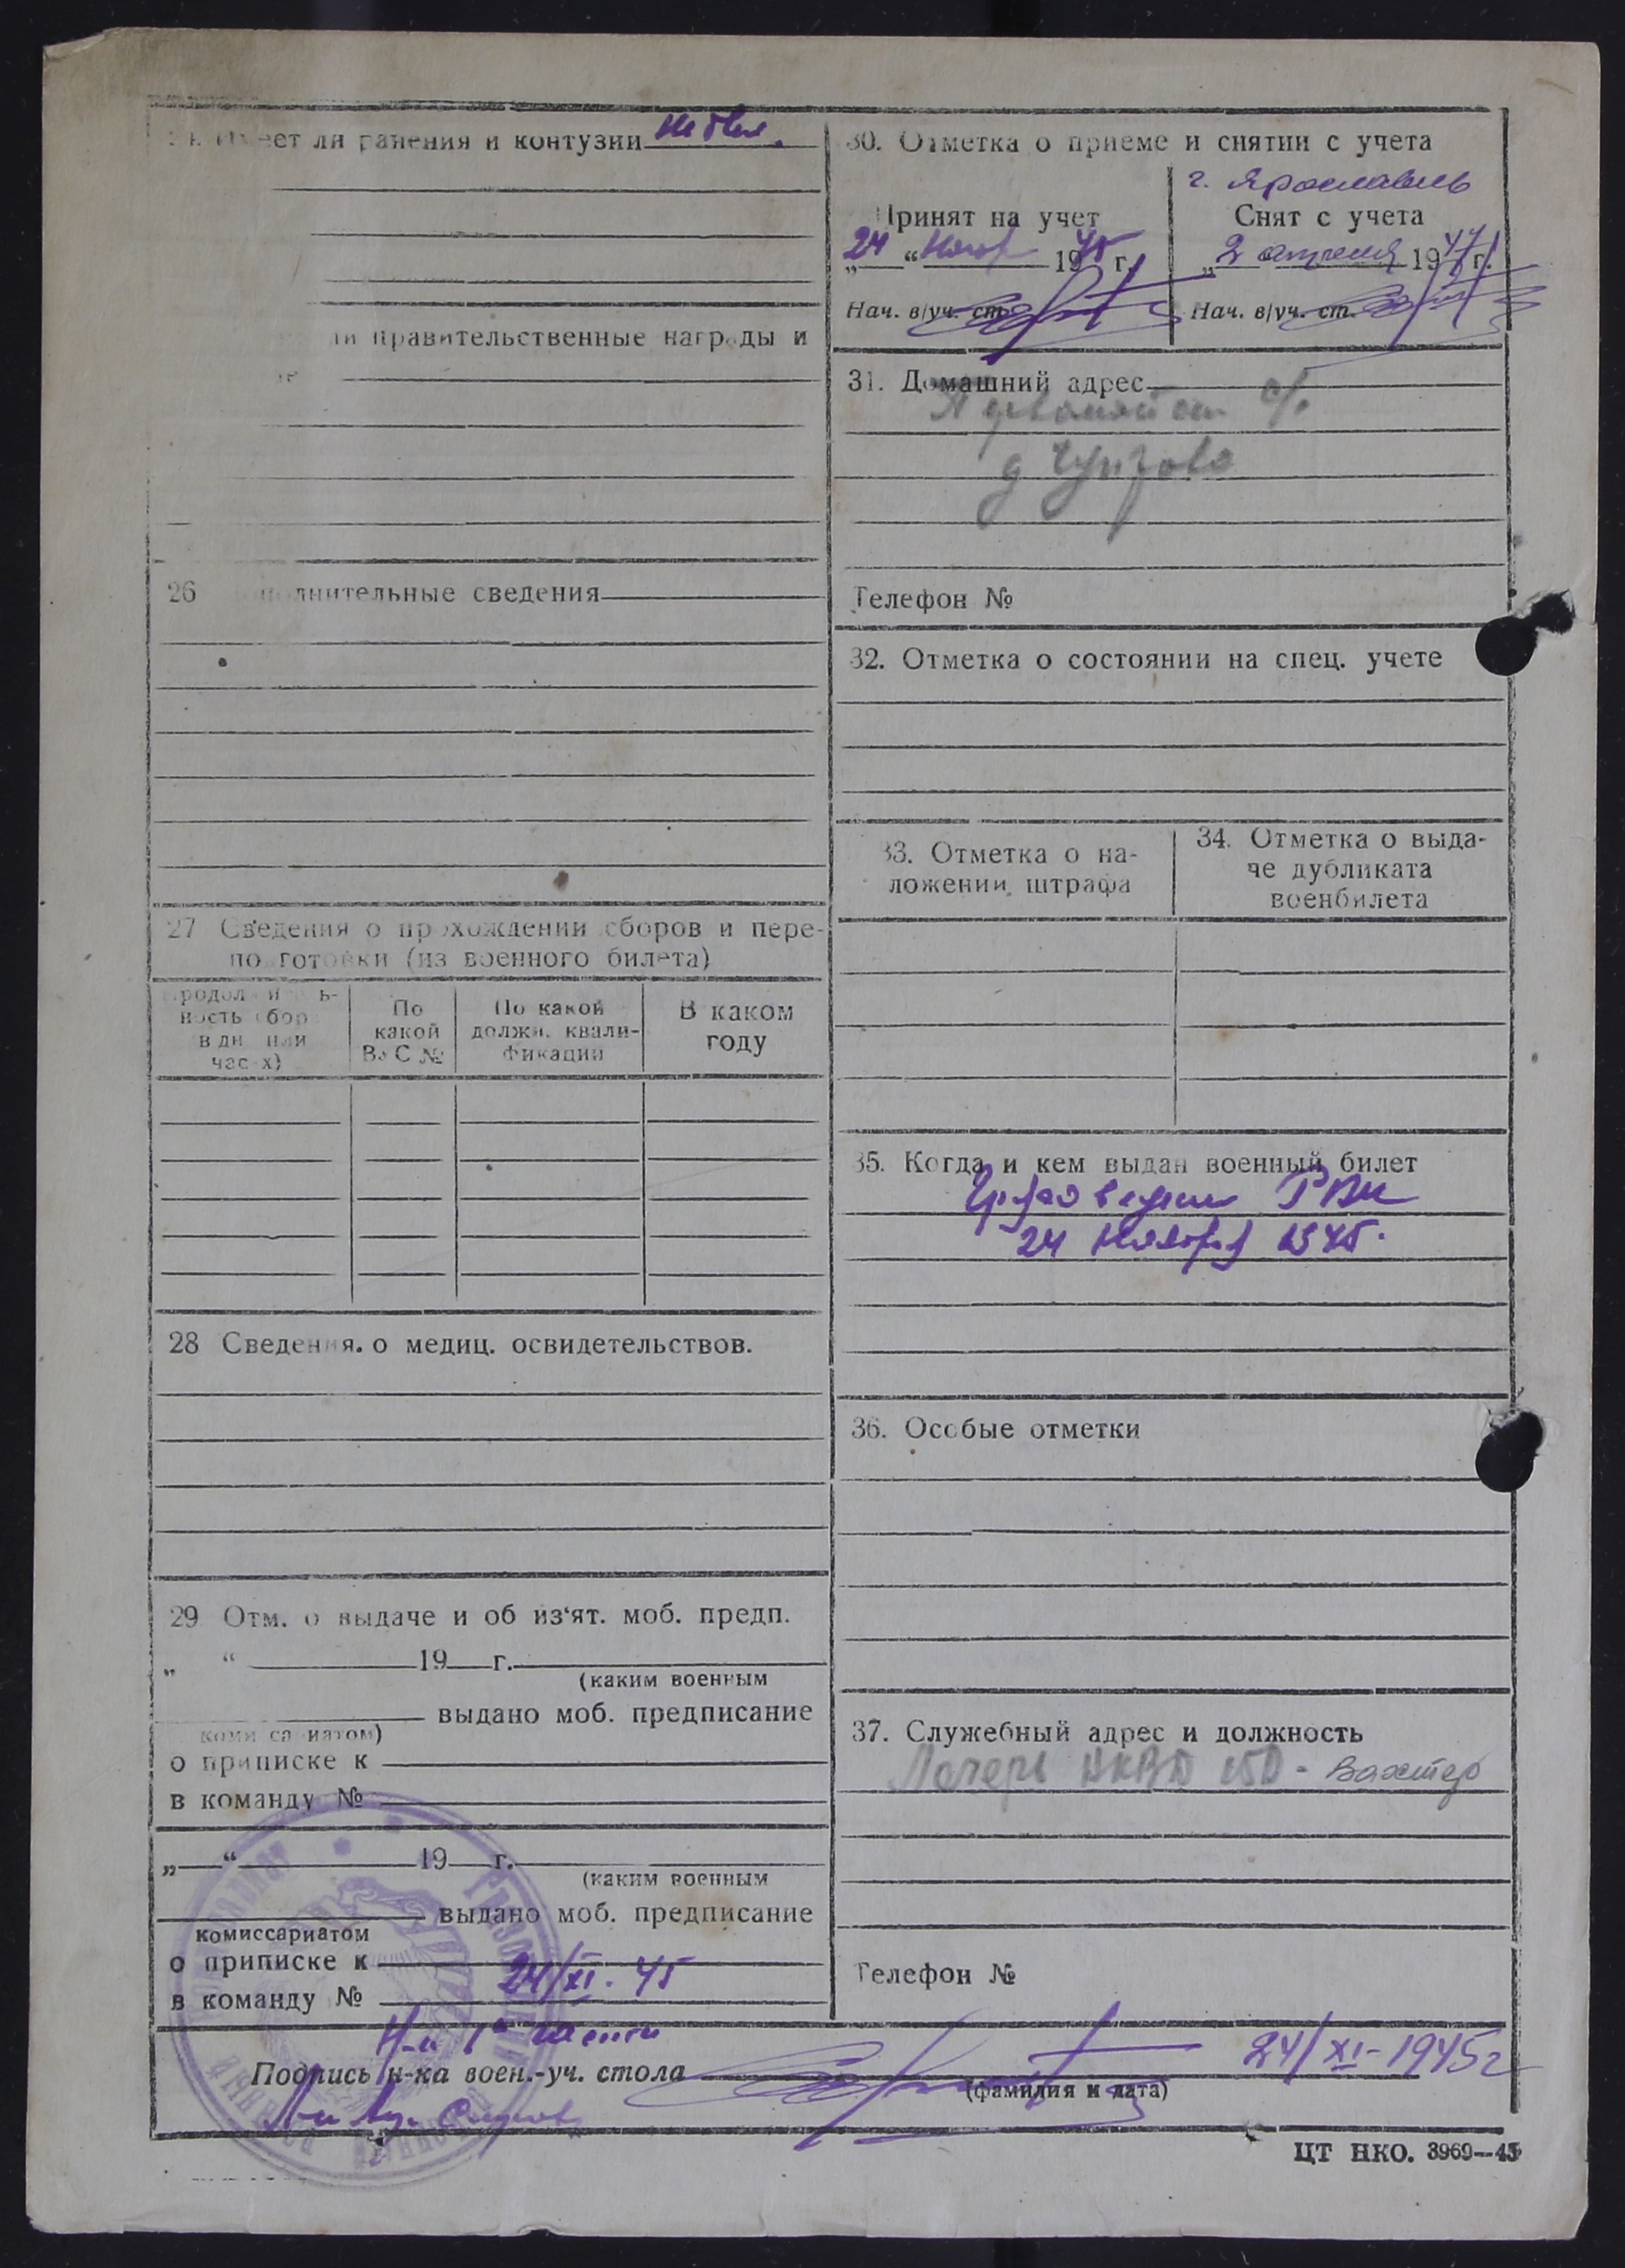 ли ранения и контузии
правительственные награды и
26 сведения
27 Сведения о прохождении сборов и пере-
подготовки (из военного билета)
ность
в дн
По
какой
ВУС №
По какой
должн. квали-
фикации
В каком
году
28 Сведения. о медиц. освидетельствов.
29 Отм. о выдаче и об из‘ят. моб. предп.
„ “ 19 г.
(каким военным
выдано моб. предписание
комиссариатом)
о приписке к
в команду №
„ “ 19 г.
(каким военным
выдано моб. предписание
комиссариатом
о приписке к
в команду №
24/XI. 45
Подпись н-ка воен.-уч. стола
24/XI-1945г
(фамилия и дата)
30. Отметка о приеме и снятии с учета
г. Ярославль
Принят на учет
„24“ 1945 г.
Нач. в/уч. ст.
Снят с учета
„2 апреля 1947 г.
Нач. в/уч. ст.
31. Домашний адрес
Телефон №
32. Отметка о состоянии на спец. учете
33. Отметка о на-
ложении штрафа
34. Отметка о выда-
че дубликата
военбилета
35. Когда и кем выдан военный билет
РВК
24 Ноября 1945.
36. Особые отметки
37. Служебный адрес и должность
Лагерь НКВД 150 - Вахтер
Телефон №
ЦТ НКО. 3969—45